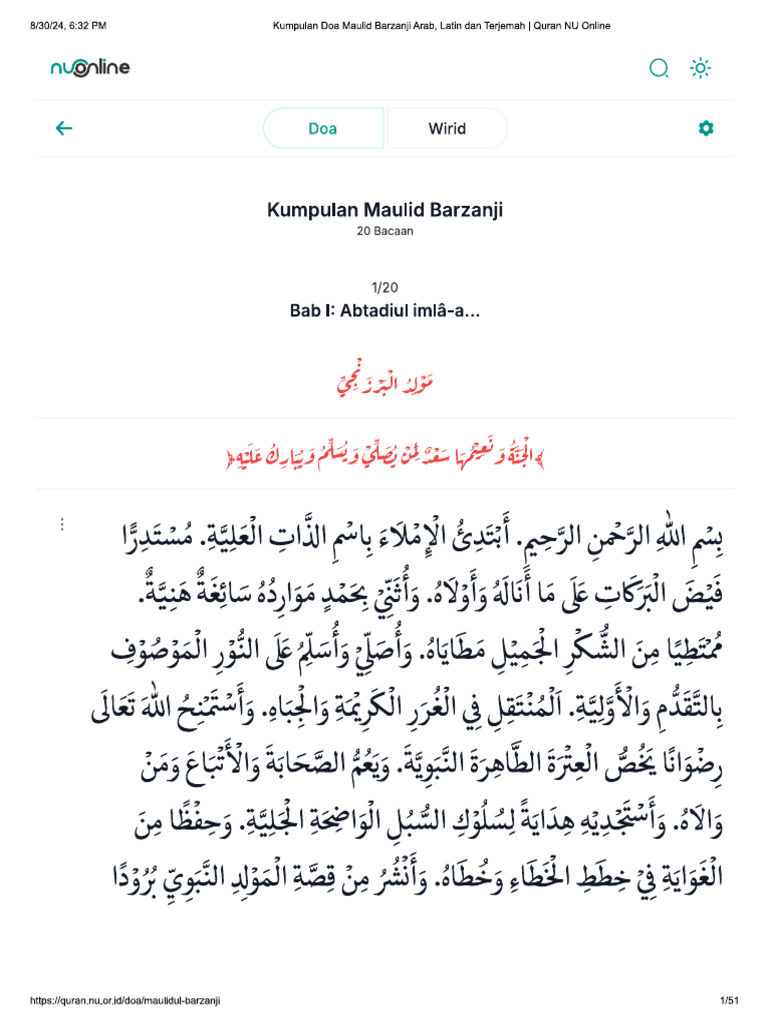 8/30/24, 6:32 PM Kumpulan Doa Maulid Barzanji Arab, Latin dan Terjemah | Quran NU Online
nuonline
Doa Wirid
Kumpulan Maulid Barzanji
20 Bacaan
1/20
Bab I: Abtadiul imlâ-a...
مَوْلِدُ الْبَرْزَنْجِيِّ
﴿الْجَنَّةُ وَنَعِيْمُهَا سَعْدٌ لِمَنْ يُصَلِّيْ وَيُسَلِّمُ وَيُبَارِكُ عَلَيْهِ﴾
بِسْمِ اللهِ الرَّحْمٰنِ الرَّحِيمِ. أَبْتَدِئُ الْإِمْلَاءَ بِاسْمِ الذَّاتِ الْعَلِيَّةِ. مُسْتَدِرًّا
فَيْضَ الْبَرَكَاتِ عَلَى مَا أَنَالَهُ وَأَوْلَاهُ. وَأُثَنِّيْ بِحَمْدٍ مَوَارِدُهُ سَائِغَةٌ هَنِيَّةٌ.
مُمْتَطِيًا مِنَ الشُّكْرِ الْجَمِيْلِ مَطَايَاهُ. وَأُصَلِّيْ وَأُسَلِّمُ عَلَى النُّوْرِ الْمَوْصُوْفِ
بِالتَّقَدُّمِ وَالْأَوَّلِيَّةِ. اَلْمُنْتَقِلِ فِي الْغُرَرِ الْكَرِيْمَةِ وَالْجِبَاهِ. وَأَسْتَمْنِحُ اللهَ تَعَالَى
رِضْوَانًا يَخُصُّ الْعِتْرَةَ الطَّاهِرَةَ النَّبَوِيَّةَ. وَيَعُمُّ الصَّحَابَةَ وَالْأَتْبَاعَ وَمَنْ
وَالَاهُ. وَأَسْتَجْدِيْهِ هِدَايَةً لِسُلُوْكِ السُّبُلِ الْوَاضِحَةِ الْجَلِيَّةِ. وَحِفْظًا مِنَ
الْغَوَايَةِ فِيْ خِطَطِ الْخَطَاءِ وَخُطَاهُ. وَأَنْشُرُ مِنْ قِصَّةِ الْمَوْلِدِ النَّبَوِيِّ بُرُوْدًا
https://quran.nu.or.id/doa/maulidul-barzanji 1/51